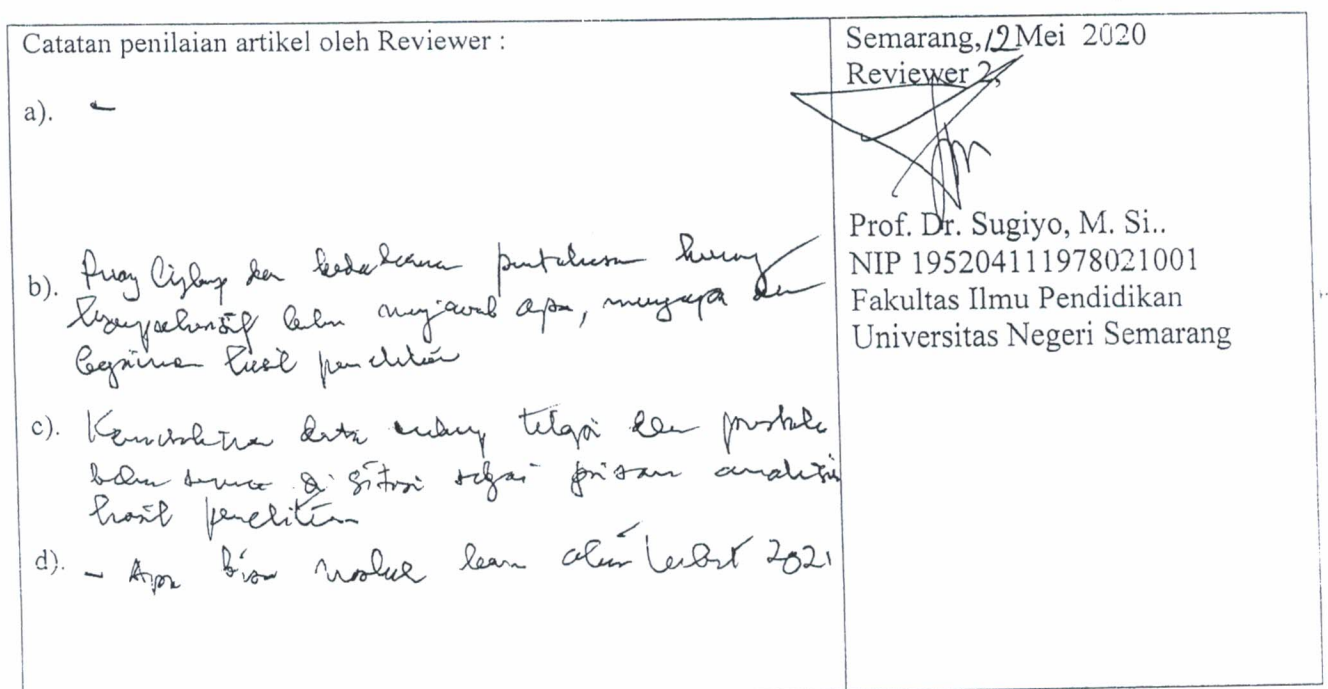 Catatan penilaian artikel oleh Reviewer :
a). -
b). Ruang lingkup dan kedalaman pembahasan kurang
komprehensif belum menjawab apa, mengapa dan
bagaimana hasil penelitian
c). data cukup dan pustaka
belum semua di sitasi sebagai pisau analisis
hasil penelitian
d). - Apa bisa masuk akan terbit 2021
Semarang, 12 Mei 2020
Reviewer 2,
Prof. Dr. Sugiyo, M. Si..
NIP 195204111978021001
Fakultas Ilmu Pendidikan
Universitas Negeri Semarang